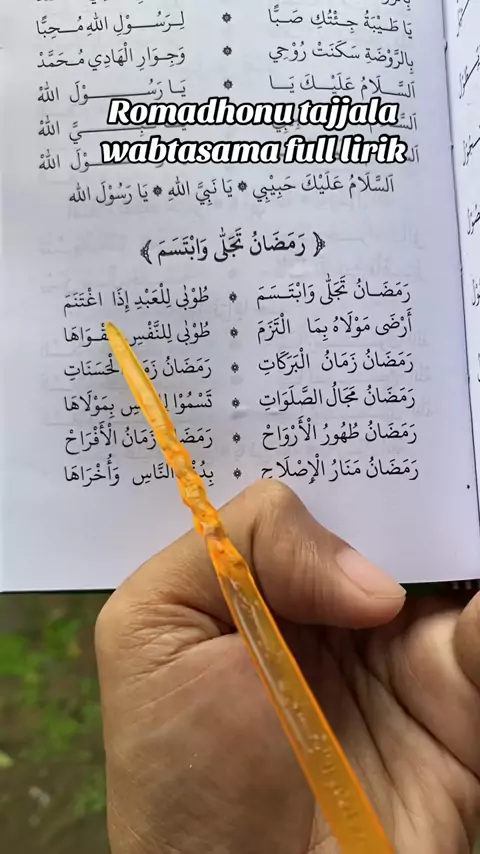 يَا طَيْبَةُ جِئْتُكِ صَبًّا ۞ لِرَسُوْلِ اللهِ مُحِبًّا
بِالرَّوْضَةِ سَكَنَتْ رُوْحِي ۞ وَجِوَارِ الْهَادِي مُحَمَّدْ
اَلسَّلَامُ عَلَيْكَ يَا ۞ يَا رَسُوْلَ اللهْ
Romadhonu tajjala
wabtasama full lirik
اَلسَّلَامُ عَلَيْكَ حَبِيْبِي ۞ يَا نَبِيَّ اللهِ ۞ يَا رَسُوْلَ الله
﴿ رَمَضَانُ تَجَلّٰى وَابْتَسَمَ ﴾
رَمَضَانُ تَجَلّٰى وَابْتَسَمَ ۞ طُوْبٰى لِلْعَبْدِ إِذَا اغْتَنَمَ
أَرْضَى مَوْلَاهُ بِمَا الْتَزَمَ ۞ طُوْبٰى لِلنَّفْسِ بِتَقْوَاهَا
رَمَضَانُ زَمَانُ الْبَرَكَاتِ ۞ رَمَضَانُ زَمَانُ الْحَسَنَاتِ
رَمَضَانُ مَجَالُ الصَّلَوَاتِ ۞ تَسْمُوْا بِمَوْلَاهَا
رَمَضَانُ طُهُورُ الْأَرْوَاحْ ۞ رَمَضَانُ زَمَانُ الْأَفْرَاحْ
رَمَضَانُ مَنَارُ الْإِصْلَاحِ ۞ النَّاسِ وَأُخْرَاهَا